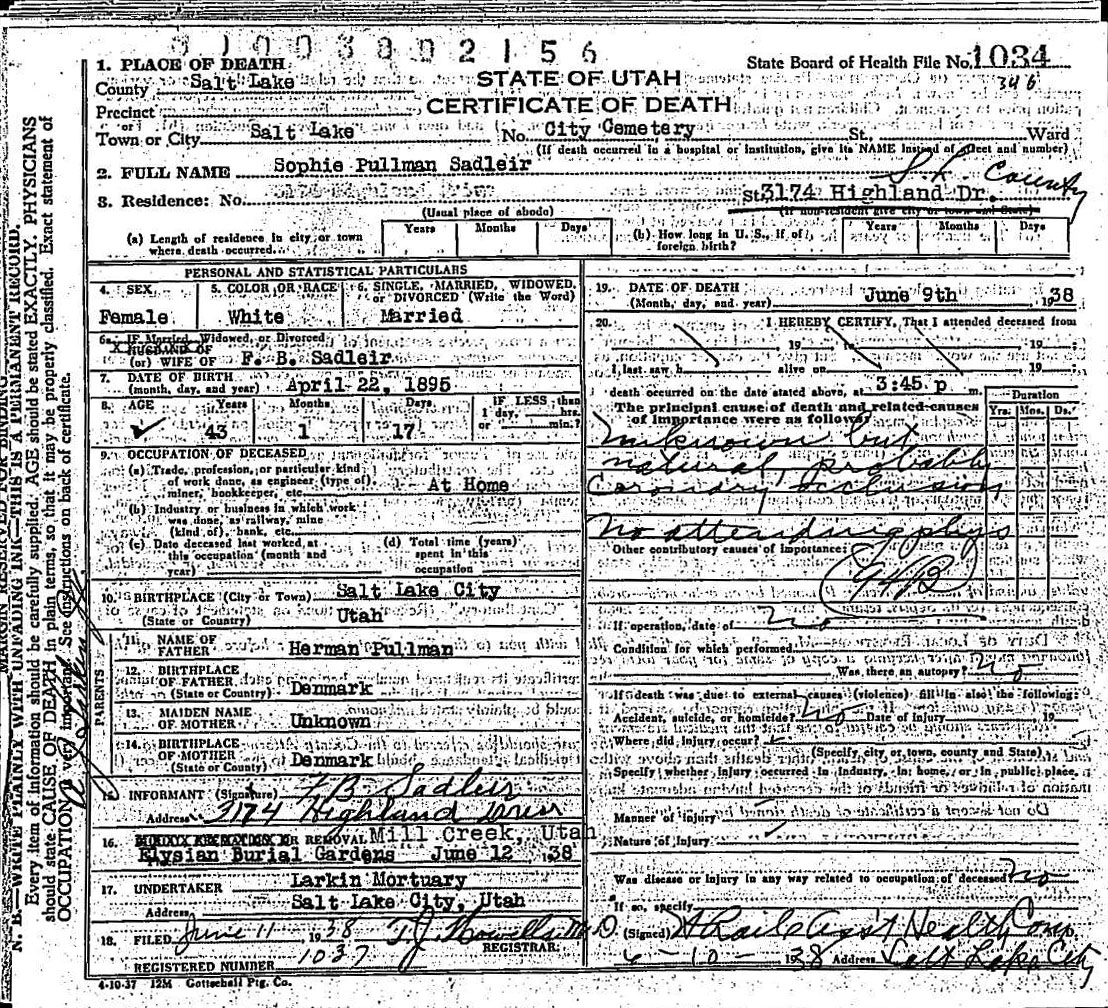 01003002156
1. PLACE OF DEATH
County Salt Lake
STATE OF UTAH
CERTIFICATE OF DEATH
State Board of Health File No. 1034
346
Precinct
or
Town or City Salt Lake No. City Cemetery St., Ward
(If death occurred in a hospital or institution, give its NAME instead of street and number)
2. FULL NAME Sophie Pullman Sadleir
S. L. County
3. Residence: No. St. 3174 Highland Dr.
(Usual place of abode) (If non-resident give city or town and State)
(a) Length of residence in city or town where death occurred. Years Months Days
(b) How long in U. S., if of foreign birth? Years Months Days
PERSONAL AND STATISTICAL PARTICULARS
4. SEX 5. COLOR OR RACE 6. SINGLE, MARRIED, WIDOWED, or DIVORCED (Write the Word)
Female White Married
6a. If Married, Widowed, or Divorced
HUSBAND OF
(or) WIFE OF F. B. Sadleir
7. DATE OF BIRTH
(month, day, and year) April 22, 1895
8. AGE Years Months Days IF LESS than
1 day, hrs.
or min.?
43 1 17
9. OCCUPATION OF DECEASED
(a) Trade, profession, or particular kind
of work done, as engineer (type of),
miner, bookkeeper, etc. At Home
(b) Industry or business in which work
was done, as railway, mine
(kind of), bank, etc.
(c) Date deceased last worked at
this occupation (month and
year)
(d) Total time (years)
spent in this
occupation
10. BIRTHPLACE (City or Town) Salt Lake City
(State or Country) Utah
PARENTS
11. NAME OF
FATHER Herman Pullman
12. BIRTHPLACE
OF FATHER
(State or Country) Denmark
13. MAIDEN NAME
OF MOTHER Unknown
14. BIRTHPLACE
OF MOTHER
(State or Country) Denmark
15. INFORMANT (Signature) F B Sadleir
Address 3174 Highland Drive
16. OR REMOVAL Mill Creek, Utah
Elysian Burial Gardens June 12 38
17. UNDERTAKER Larkin Mortuary
Address Salt Lake City, Utah
18. FILED June 11 1938 T. J. Howells M.D.
REGISTRAR.
REGISTERED NUMBER 1037
4-10-37 12M Gottschall Ptg. Co.
19. DATE OF DEATH
(Month, day, and year) June 9th 1938
20. I HEREBY CERTIFY, That I attended deceased from
19 to 19
I last saw h alive on 19
death occurred on the date stated above, at 3:45 p m.
The principal cause of death and related causes
of importance were as follows:
Duration
Yrs. Mos. Ds.
Unknown but
natural, probably
Coronary occlusion
No attending phys
Other contributory causes of importance:
94B
If operation, date of No
Condition for which performed
Was there an autopsy? No
If death was due to external causes (violence) fill in also the following:
Accident, suicide, or homicide? No Date of injury 19
Where did injury occur?
(Specify city or town, county and State)
Specify whether injury occurred in industry, in home, or in public place.
Manner of injury
Nature of injury
Was disease or injury in any way related to occupation of deceased? No
If so, specify
(Signed) Asst Health Com.
6-10-1938 Address Salt Lake City
MARGIN RESERVED FOR BINDING
N. B.—WRITE PLAINLY WITH UNFADING INK—THIS IS A PERMANENT RECORD.
Every item of information should be carefully supplied. AGE should be stated EXACTLY. PHYSICIANS
should state CAUSE OF DEATH in plain terms, so that it may be properly classified. Exact statement of
OCCUPATION is very important. See instructions on back of certificate.